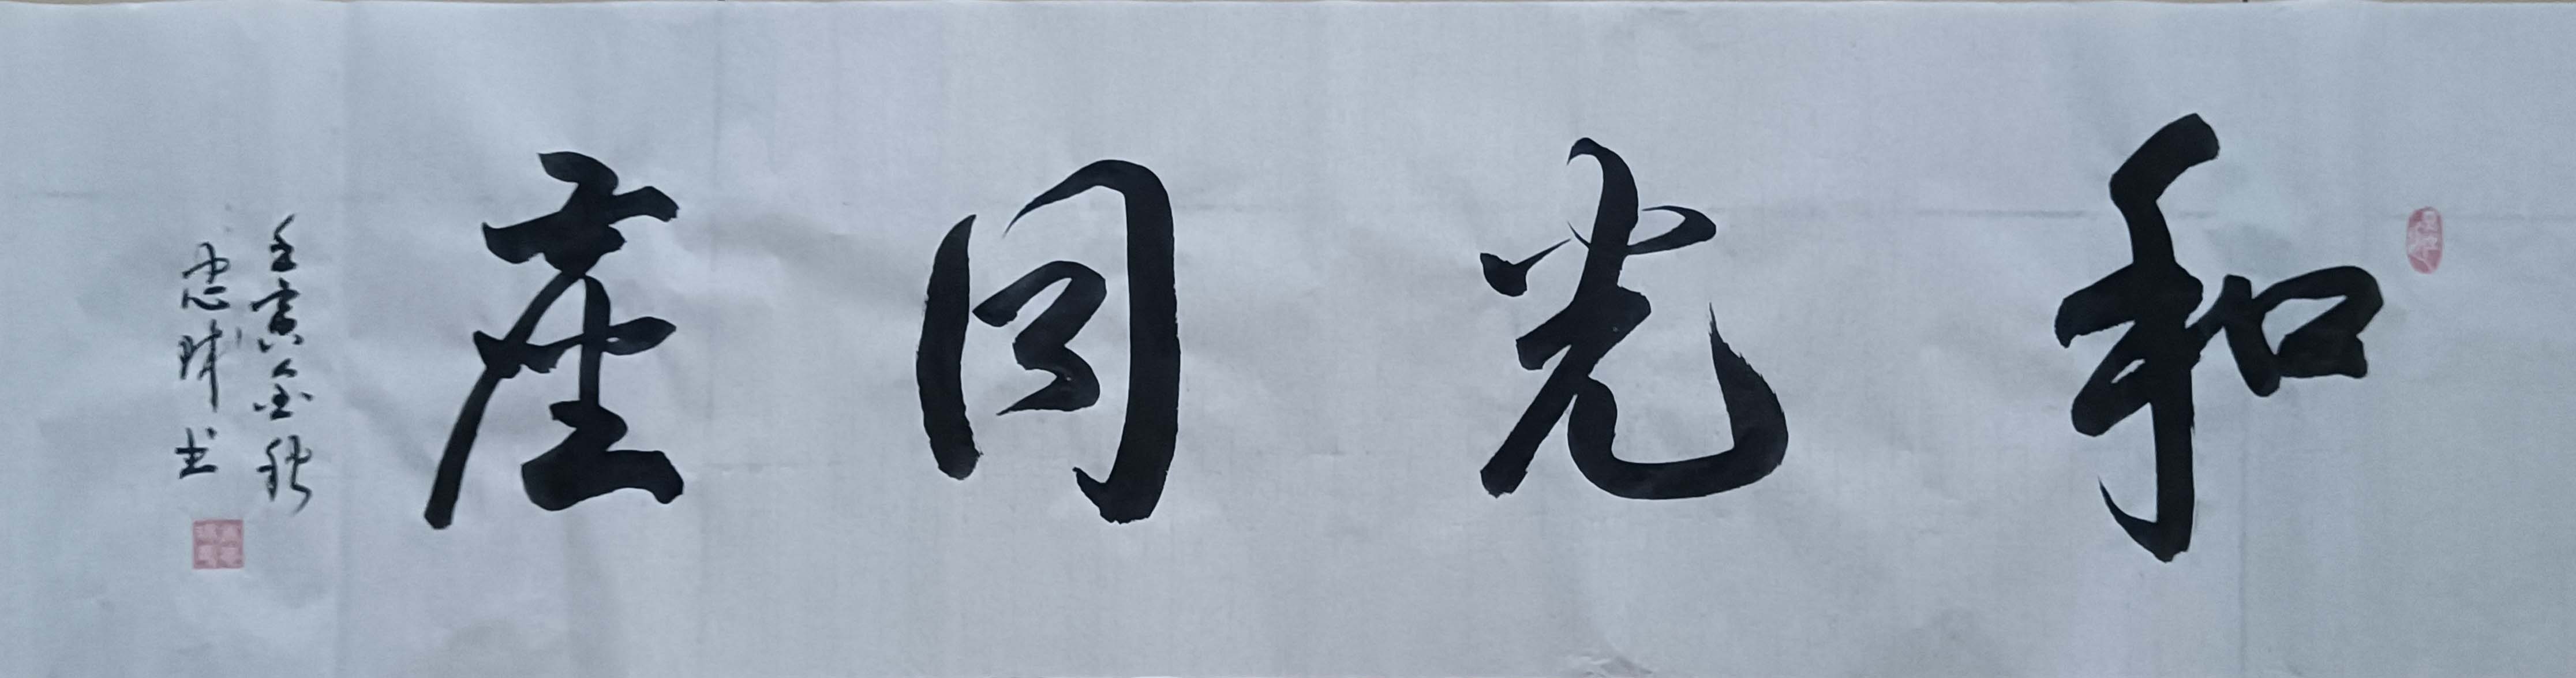 和光同塵
壬寅金秋
忠诚书